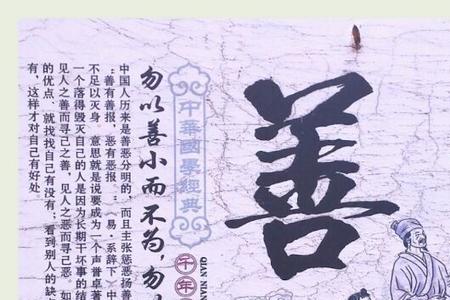 善
中華國學經典
千年
QIAN NIAN
勿以善小而不为，勿
中国人历来是善恶分明的，而且主张惩恶扬善
“善有善报，恶有恶报。”《易·系辞下》中
不足以灭身”意思就是说要成为一个声誉卓著
一个落得毁灭自己的人是因为长期干坏事的结
见人之善而寻己之善，见人之恶而寻己恶。如
的优点，就找找自己有没有；看到别人的缺
有，这样才对自己有好处。